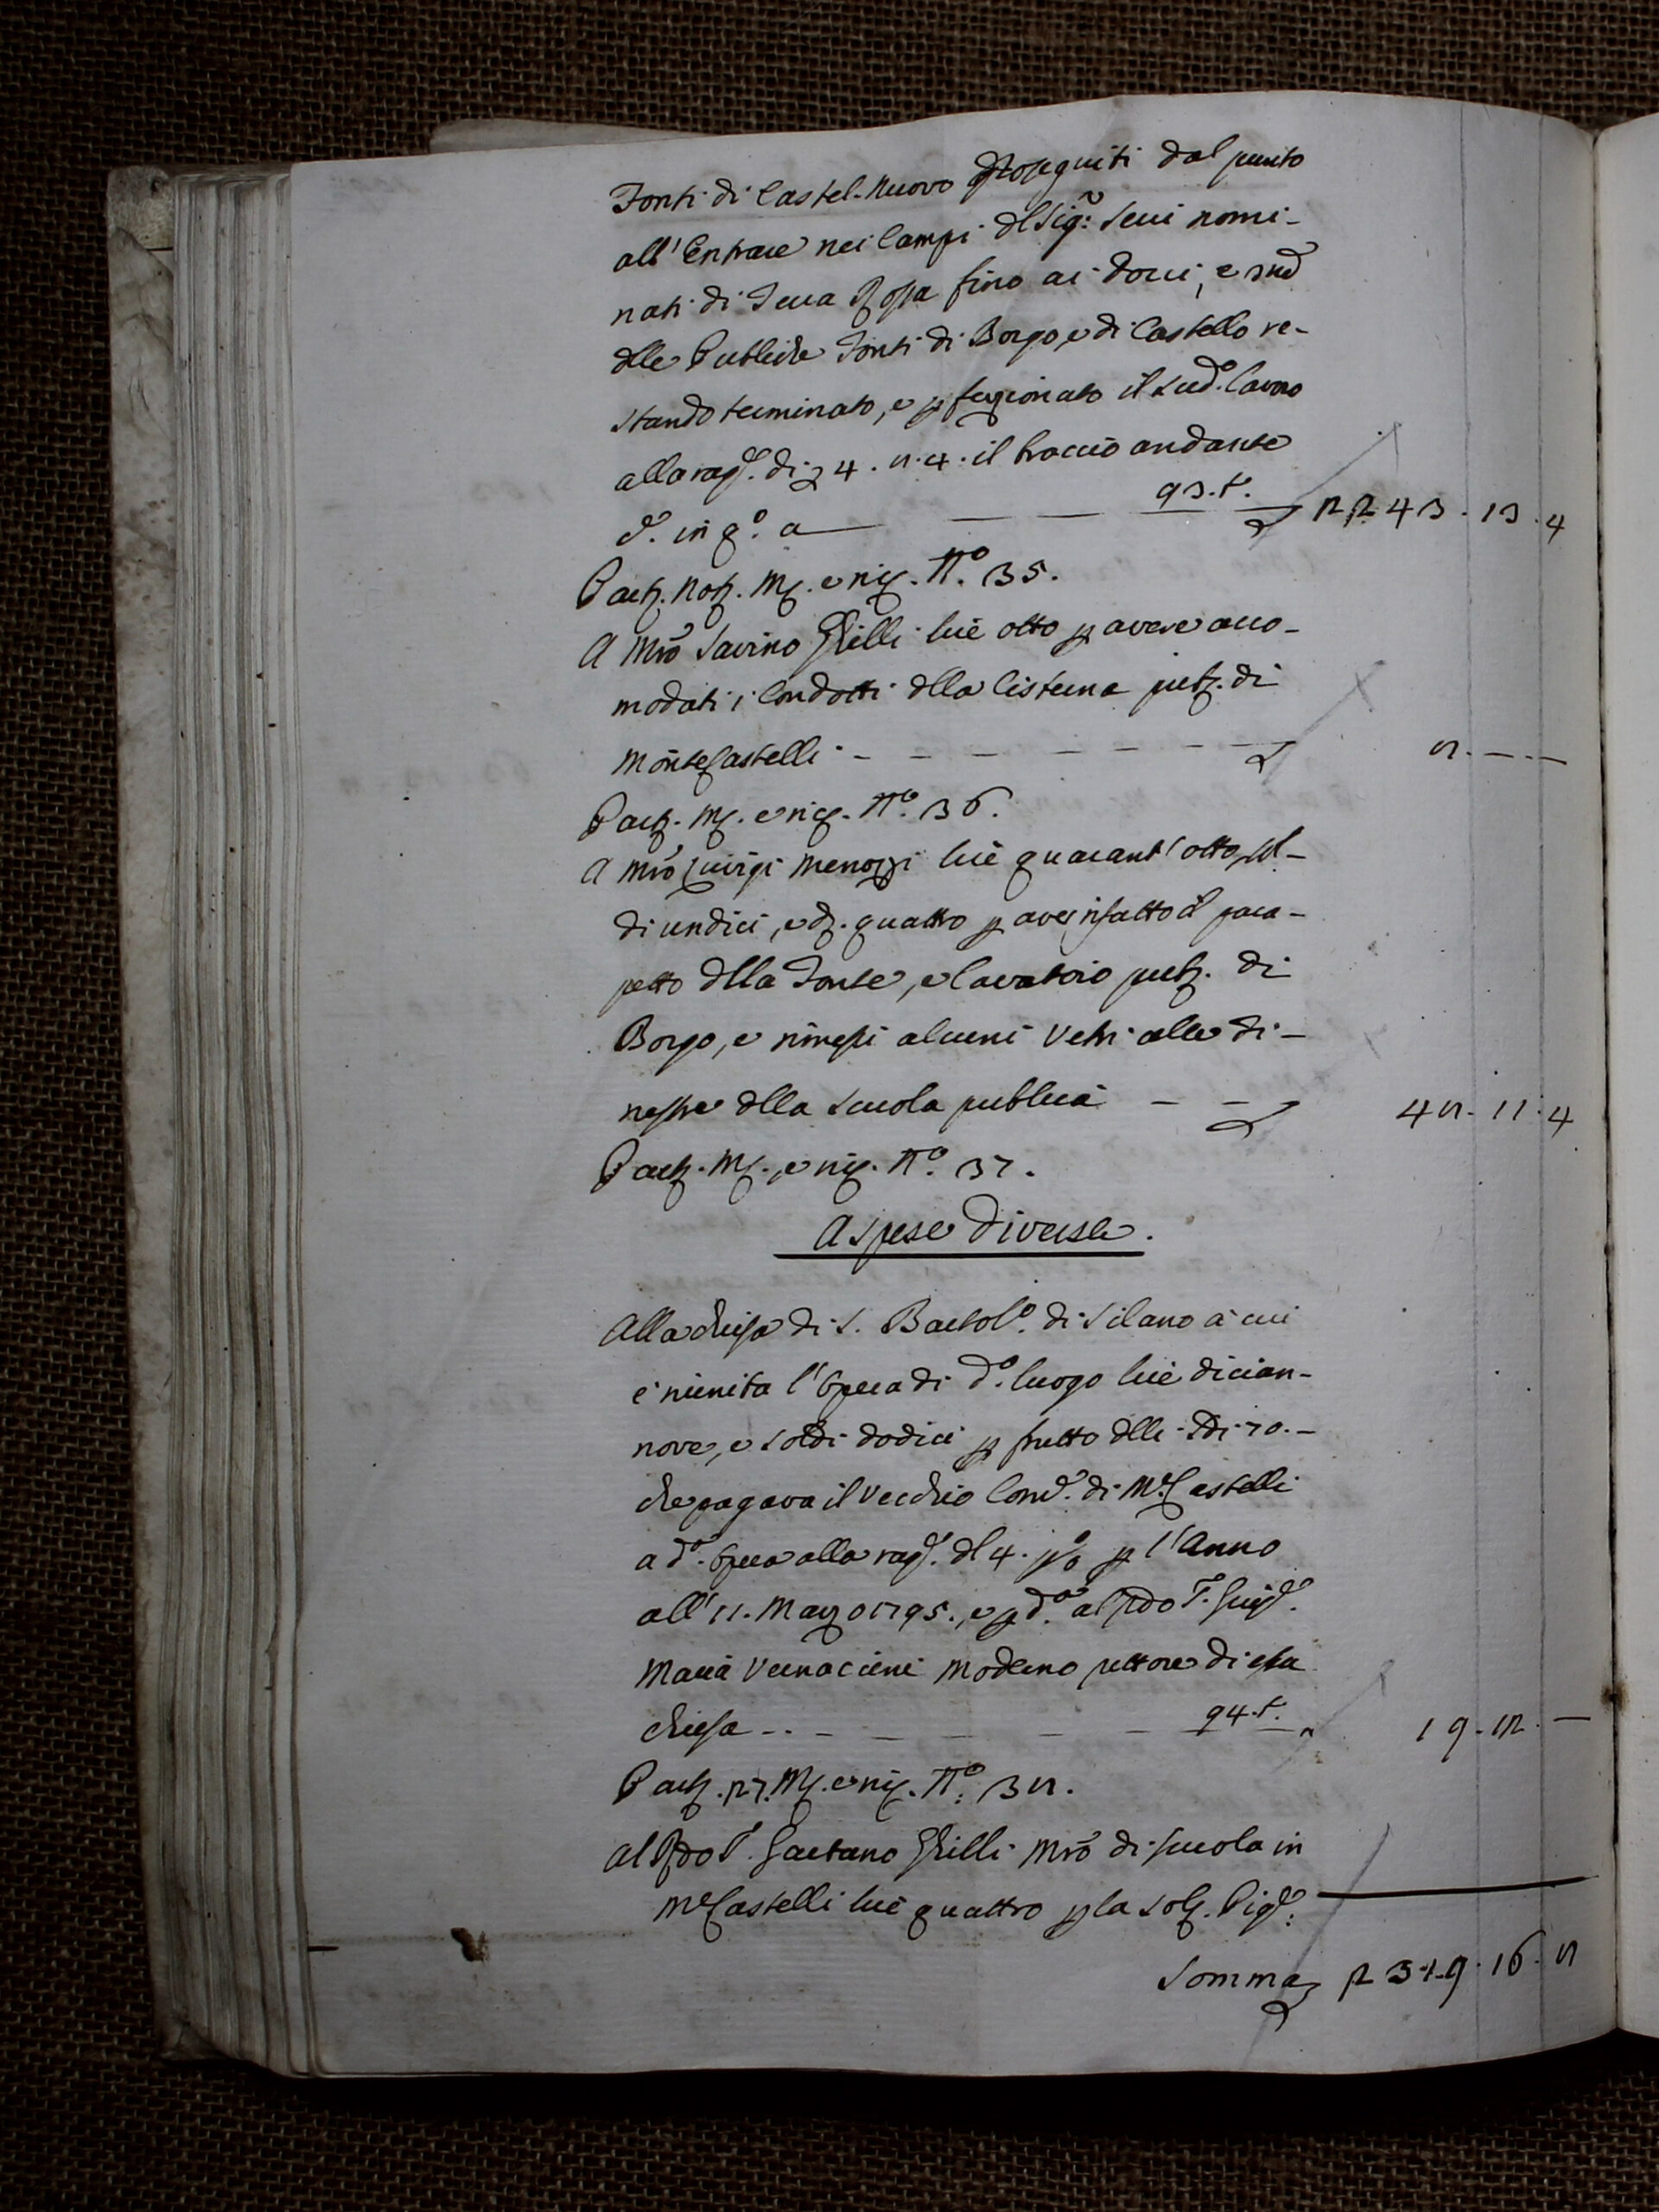 Fonti di Castel-Nuovo proseguiti dal punto
all'Entrare nei Campi del Sig:r Seri nomi-
nati di Terra Rossa fino ai docci, e
delle Publiche Fonti di Borgo, e di Castello re-
stando terminato, e pfezionato il Sud.o lavoro
alla rag.e di £ 4. 8. 4. il braccio andante
d.o in q.o a — — — 93.t. £ 2243.13.4
Part. Not. M. e ric. N.o 35.
A Mro Savino Ghilli lire otto p avere acco-
modati i Condotti della Cisterna pub. di
MonteCastelli - - - - - - - £ 8. — —
Part. M. e ric. N.o 36.
A Mro Luigi Menozzi lire quarant'otto, sol-
di undici, e d. quattro p aver rifatto il para-
petto della Fonte, e lavatoio pub. di
Borgo, e rimessi alcuni vetri alle fi-
nestre della Scuola publica - - £ 48.11.4
Part. M. e ric. N.o 37.
A Spese Diverse.
Alla Chiesa di S. Bartol.o di Silano a cui
è riunita l'Opera di d.o luogo lire dician-
nove, e soldi dodici p frutto delli Sdi 70.-
che pagava il vecchio Com.e di M.e Castelli
a d.a Opera alla rag.e del 4. p% p l'Anno
all'11. Marzo 1795., e p d.a al Rdo P.
Maria Vernaccini moderno rettore di essa
Chiesa - - - - - 94.t. " 19.12. —
Part. 27. M. e ric. N.o: 38.
Al Rdo P. Gaetano Ghilli Mro di Scuola in
M.eCastelli lire quattro p la sol. Pig.e:
Somma £ 2319.16.8